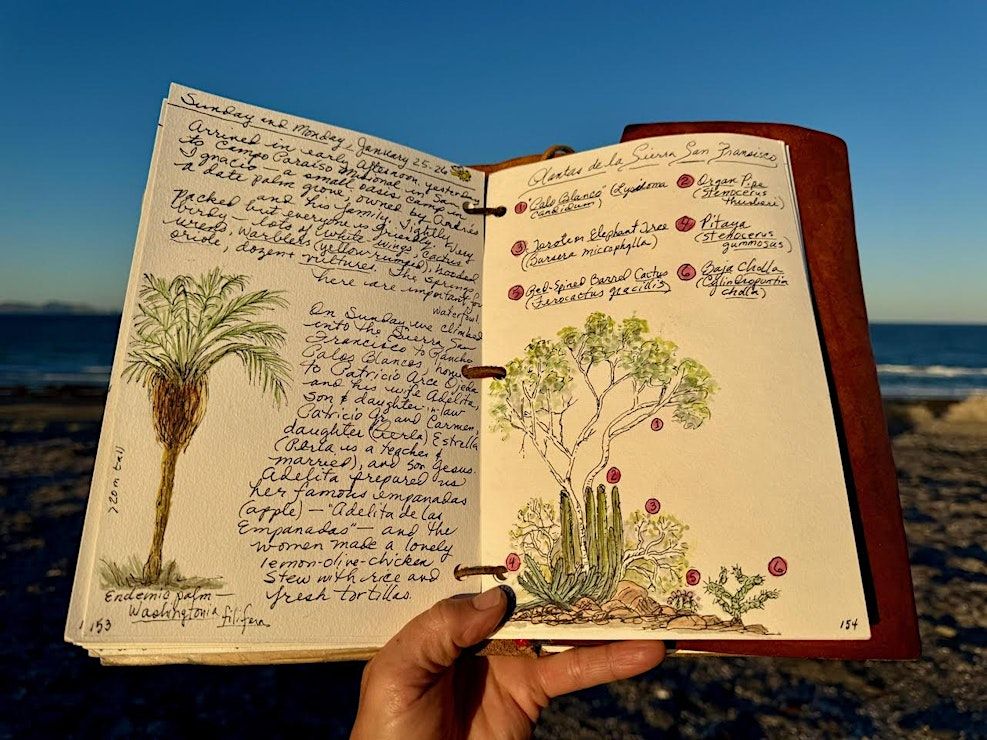 Sunday and Monday, January 25-26
Arrived in early afternoon yesterday
to Campo Paraiso Misional in San
Ignacio — a small oasis camp in
a date palm grove, owned by Andrés
and his family. Tightly
Packed but everyone is friendly. Very
birdy — lots of white wings, cactus
wrens, warblers (yellow rumped), hooded
oriole, dozens vultures. The springs
here are important for
waterfowl.
On Sunday we climbed
into the Sierra San
Francisco to Rancho
Palos Blancos, home
to Patricio Arce Ojeda
and his wife Adelita,
son & daughter-in-law
Patricio Jr. and Carmen,
daughter (Perla) Estrella
(Perla is a teacher &
married), and son Jesus.
Adelita prepared us
her famous empanadas
(apple) — "Adelita de las
Empanadas" — and the
women made a lovely
lemon-olive-chicken
stew with rice and
fresh tortillas.
>20 m tall
Endemic palm —
Washingtonia filifera
153
Plantas de la Sierra San Francisco
1 "Palo Blanco" (Lysiloma
candidum)
2 Organ Pipe
(Stenocerus
thurberi)
3 Torote or Elephant Tree
(Bursera microphylla)
4 Pitaya
(Stenocerus
gummosus)
5 Red-Spined Barrel Cactus
(Ferocactus gracillis)
6 Baja Cholla
(Cylindropuntia
cholla)
1
2
3
4
5
6
154